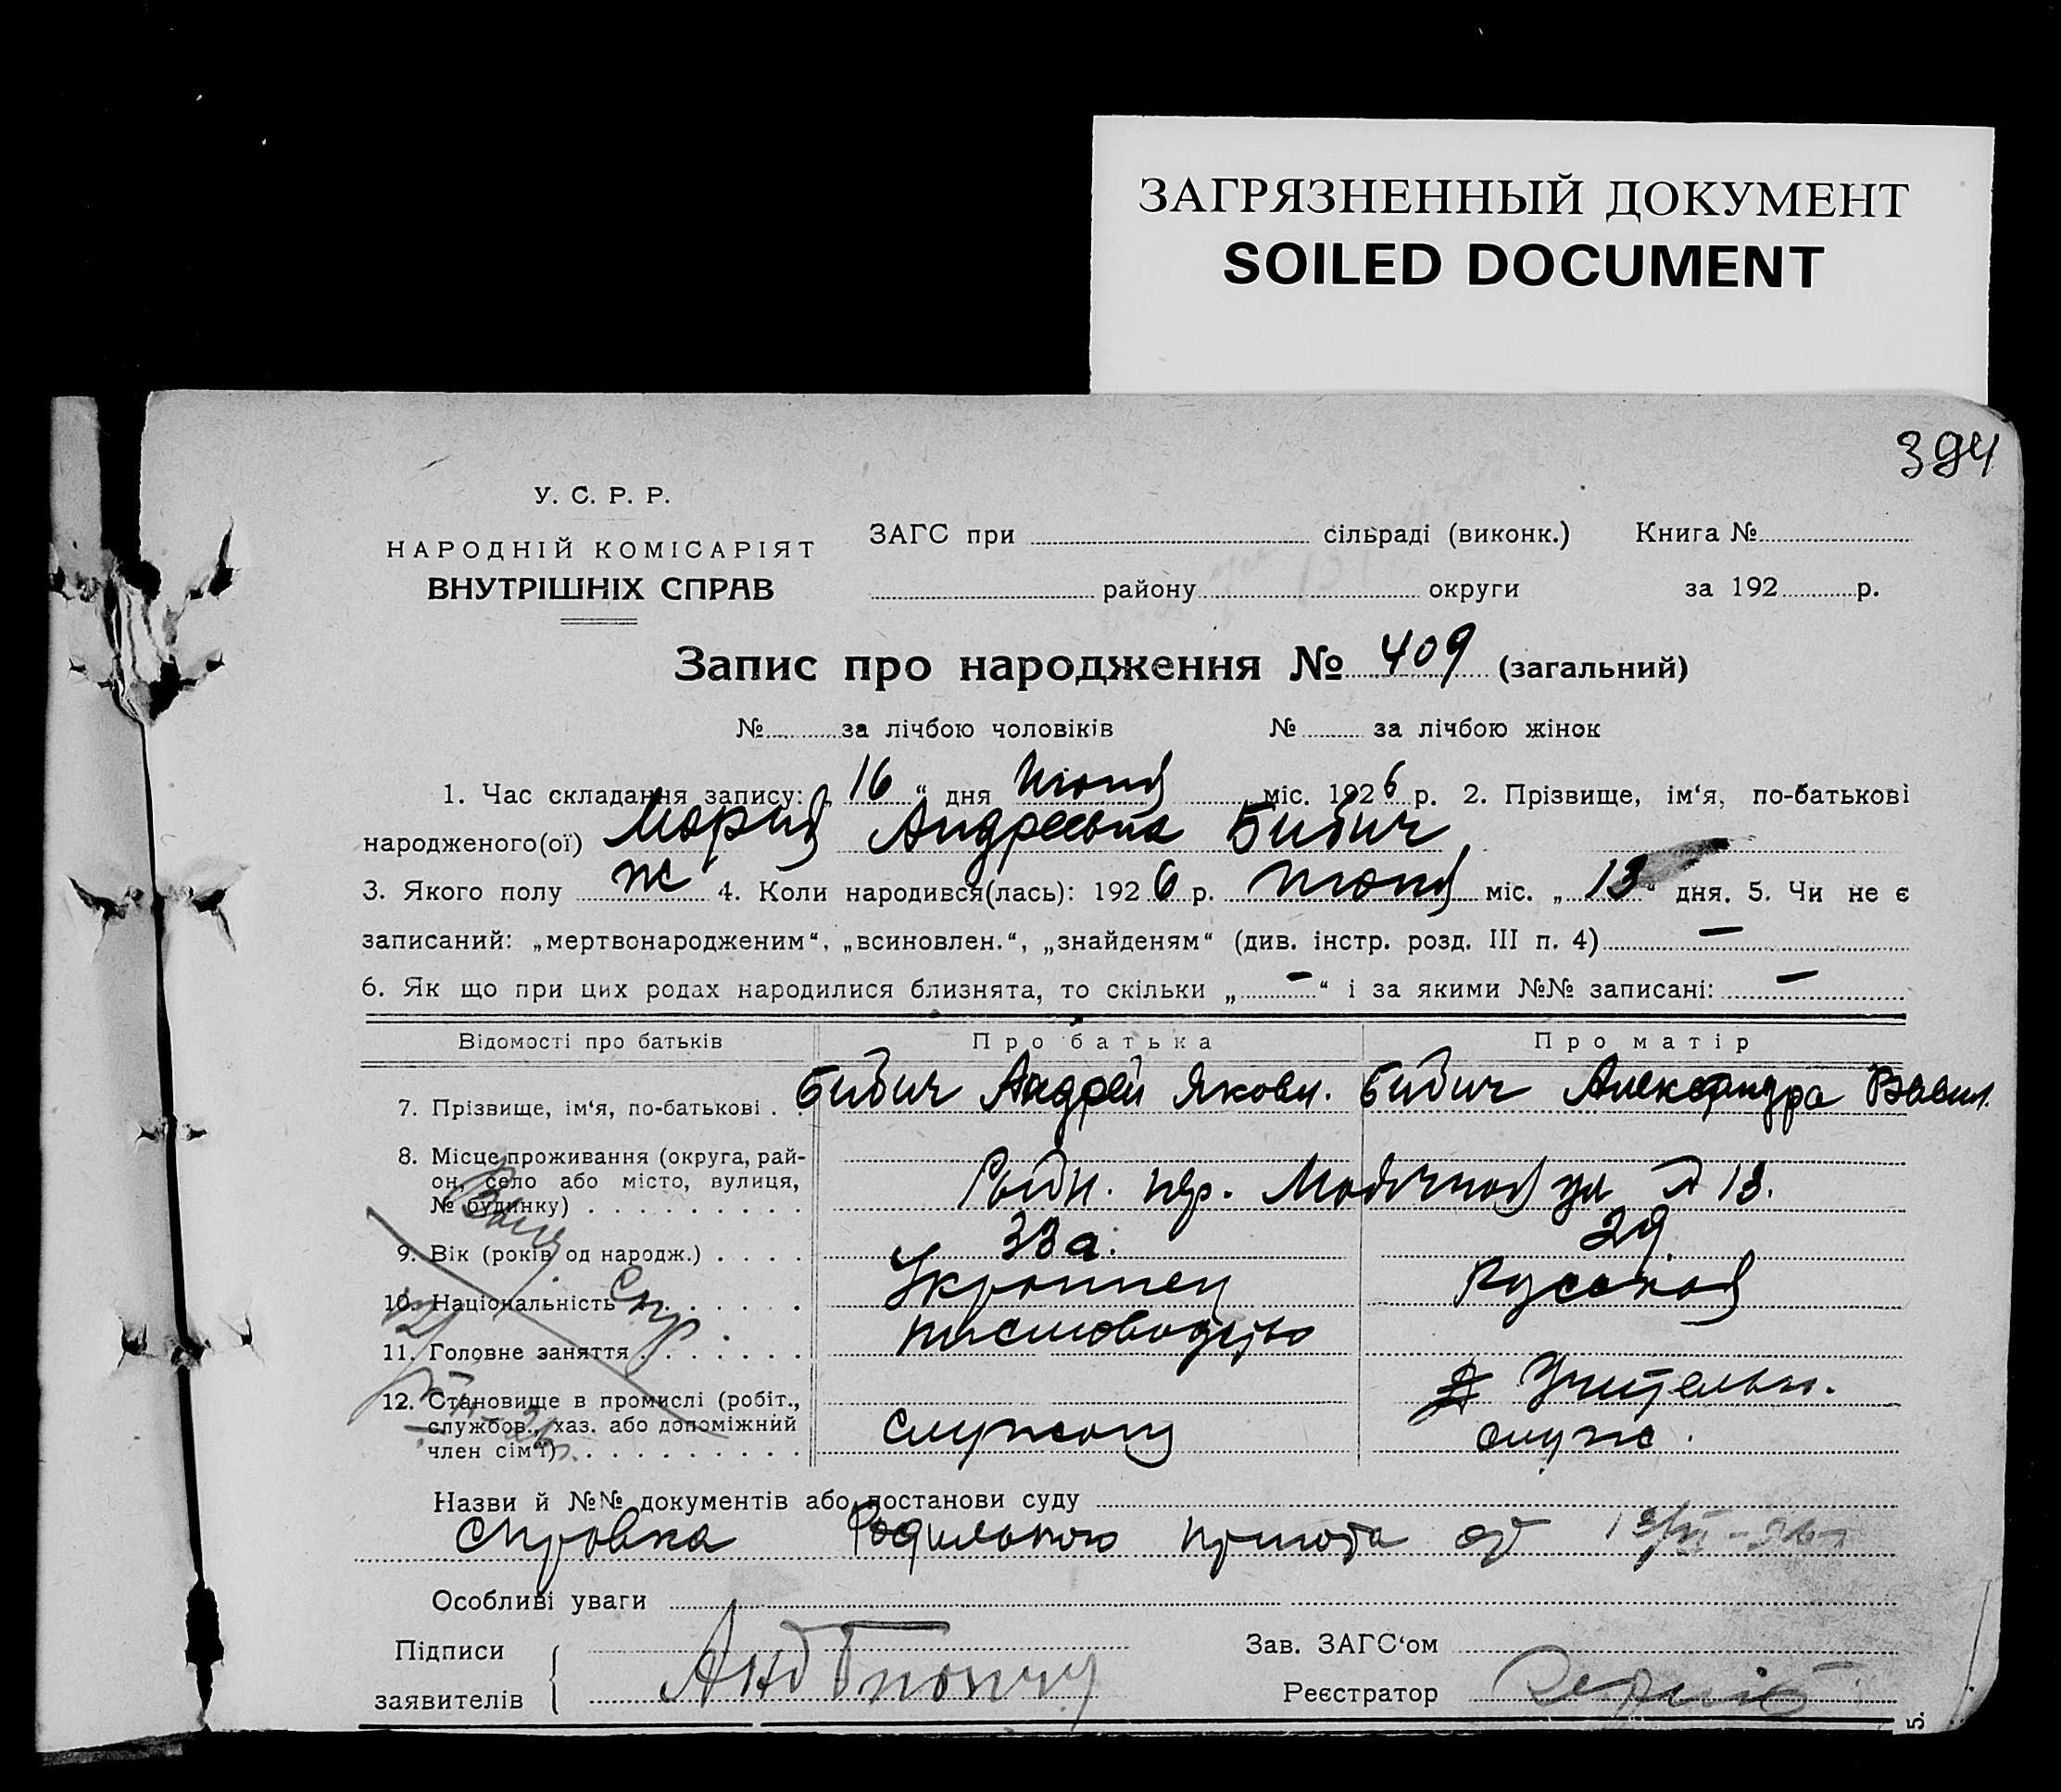 ЗАГРЯЗНЕННЫЙ ДОКУМЕНТ
SOILED DOCUMENT
394
У. С. Р. Р.
НАРОДНІЙ КОМІСАРІЯТ
ВНУТРІШНІХ СПРАВ
ЗАГС при сільраді (виконк.) Книга №
району округи за 192 р.
Запис про народження № 409 (загальний)
№ за лічбою чоловіків № за лічбою жінок
1. Час складання запису: „16“ дня Июня міс. 1926 р. 2. Прізвище, ім‘я, по-батькові
народженого(ої) Мария Андреевна Бибич
3. Якого полу ж 4. Коли народився(лась): 1926 р. июня міс. „13“ дня. 5. Чи не є
записаний: „мертвонародженим“, „всиновлен.“, „знайденям“ (див. інстр. розд. III п. 4) —
6. Як що при цих родах народилися близнята, то скільки „—“ і за якими №№ записані: —
Відомості про батьків Про батька Про матір
7. Прізвище, ім‘я, по-батькові . Бибич Андрей Яковл. Бибич Александра Васил.
8. Місце проживання (округа, рай-
он, село або місто, вулиця,
№ будинку) . . . . . . . . . пер. ул 13.
9. Вік (років од народж.) . . . . 33 29.
10. Національність . . . . . . Украинец Русская
11. Головне заняття . . . . . . письмоводство
12. Становище в промислі (робіт., Учительн.
службов., хаз. або допоміжний
член сім‘ї) . . . . . . . . . служащ служ.
Назви й №№ документів або постанови суду
справка Родильного приюта от
Особливі уваги
Підписи Зав. ЗАГС‘ом
заявителів Реєстратор
5.